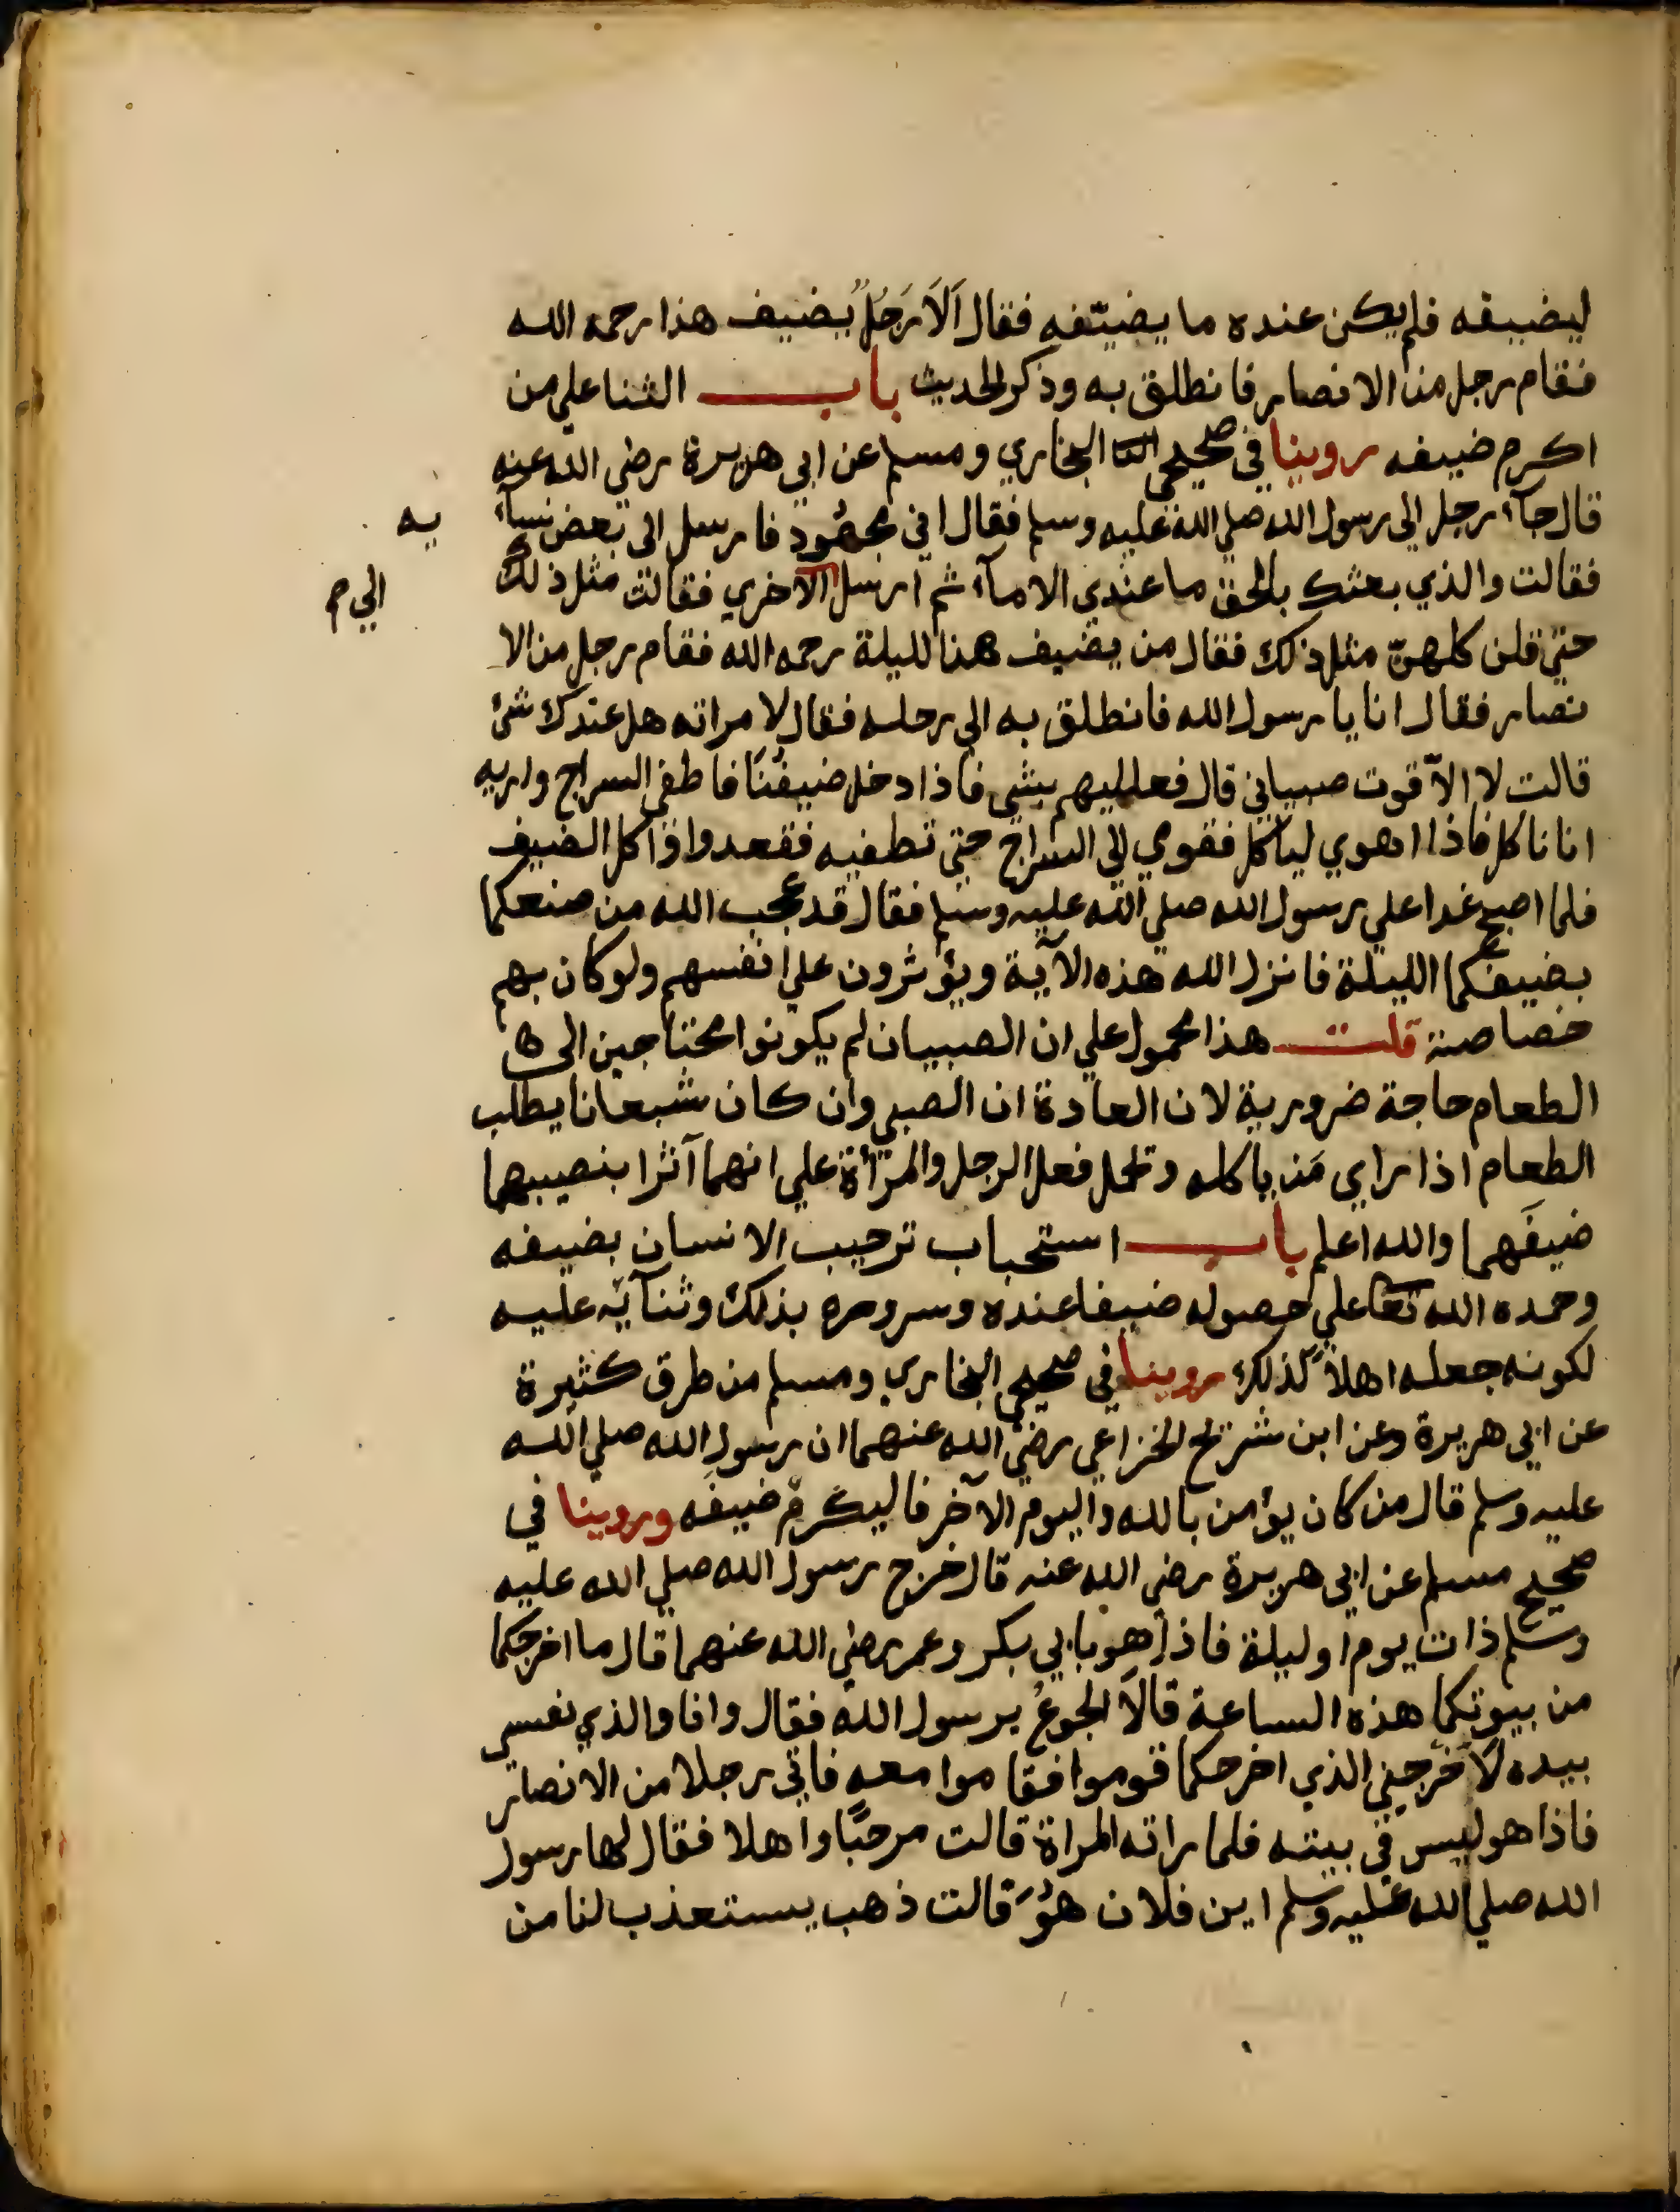 ليضيفه فلم يكن عنده ما يضيّفه فقال اَلَا رَجُلٌ يضيف هذا رحمه الله
فقام رجل من الانصار فانطلق به وذكر الحديث باب الثنا علي من
اكرم ضيفه روينا في صحيحي البخاري ومسلم عن ابي هريرة رضي الله عنه
قال جآء رجل الي رسول الله صلي الله عليه وسلم فقال اني مجهُود فارسل الى بعض نسآء
يه
فقالت والذي بعثك بالحق ما عندي الا مآء ثم ارسل الاخري فقالت مثل ذلك
الي م
حتي قلن كلهنّ مثل ذلك فقال من يضيف هذا لليلة رحمه الله فقام رجل من الا
نصار فقال انا يا رسول الله فانطلق به الي رحله فقال لامراته هل عندك شئ
قالت لا الاّ قوت صبياني قال فعلليهم بشي فاذا دخل ضيفُنَا فاطفي السراج واريه
انا ناكل فاذا اهوي لياكل فقومي الي السراج حتي تطفيه فقعدوا واكل الضيف
فلما اصبح غدا علي رسول الله صلي الله عليه وسلم فقال قد عجب الله من صنعكما
بضيفكما الليلة فانزل الله هذه الآية ويؤثرون علي انفسهم ولو كان بهم
خصاصة قلت هذا محمول علي ان الصبيان لم يكونوا محتاجين الى
الطعام حاجة ضرورية لان العادة ان الصبي وان كان شبعانا يطلب
الطعام اذا راي مَن ياكله وتحمل فعل الرجل والمرأة علي انهما آثرا بنصيبهما
ضيفَهما والله اعلم باب استحباب ترحيب الانسان بضيفه
وحمده الله تعا علي حصوله ضيفا عنده وسروره بذلك وثنآئه عليه
لكونه جعله اهلاً لذلك روينا في صحيحي البخاري ومسلم من طرق كثيرة
عن ابي هريرة وعن ابن شريح الخزاعي رضي الله عنهما ان رسول الله صلي الله
عليه وسلم قال من كان يؤمن بالله واليوم الآخر فاليكرم ضيفَه وروينا في
صحيح مسلم عن ابي هريرة رضي الله عنه قال خرج رسول الله صلي الله عليه
وسلم ذات يوم او ليلة فاذا هو بابي بكر وعمر رضي الله عنهما قال ما اخرجكما
من بيوتكما هذه الساعة قالَا الجوعُ يرسول الله فقال وانا والذي نفسي
بيده لَاَخرجني الذي اخرجكما قوموا فقاموا معه فاتي رجلا من الانصار
فاذا هو ليس في بيته فلما راته المراة قالت مرحبًا واهلا فقال لها رسول
الله صلي الله عليه وسلم اين فلان هُوَ قالت ذهب يستعذب لنا من